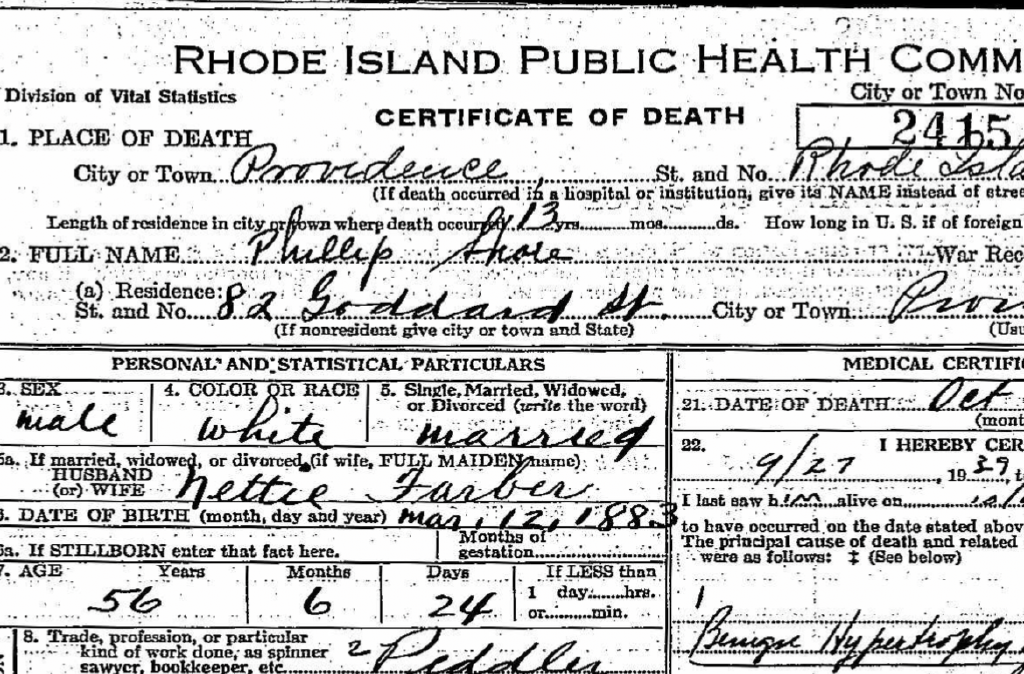 RHODE ISLAND PUBLIC HEALTH COMM
Division of Vital Statistics
City or Town No
CERTIFICATE OF DEATH
2415
1. PLACE OF DEATH
City or Town Providence, St. and No. Rhode Isla
(If death occurred in a hospital or institution, give its NAME instead of stree
Length of residence in city or town where death occurred 13 yrs. mos. ds. How long in U. S. if of foreign
2. FULL NAME Phillip Shore War Rec
(a) Residence:
St. and No. 82 Goddard St. City or Town Prov
(If nonresident give city or town and State) (Usu
PERSONAL AND STATISTICAL PARTICULARS
3. SEX 4. COLOR OR RACE 5. Single, Married, Widowed,
or Divorced (write the word)
male white married
5a. If married, widowed, or divorced (if wife, FULL MAIDEN name)
HUSBAND
(or) WIFE Nettie Farber
6. DATE OF BIRTH (month, day and year) Mar. 12, 1883
6a. If STILLBORN enter that fact here. Months of
gestation
7. AGE Years Months Days If LESS than
56 6 24 1 day hrs.
or min.
8. Trade, profession, or particular
kind of work done, as spinner
sawyer, bookkeeper, etc. 2 Peddler
MEDICAL CERTIFIC
21. DATE OF DEATH Oct
(mont
22. I HEREBY CER
9/27, 1939, t
I last saw him alive on 10/
to have occurred on the date stated abov
The principal cause of death and related
were as follows: ‡ (See below)
1
Benign Hypertrophy